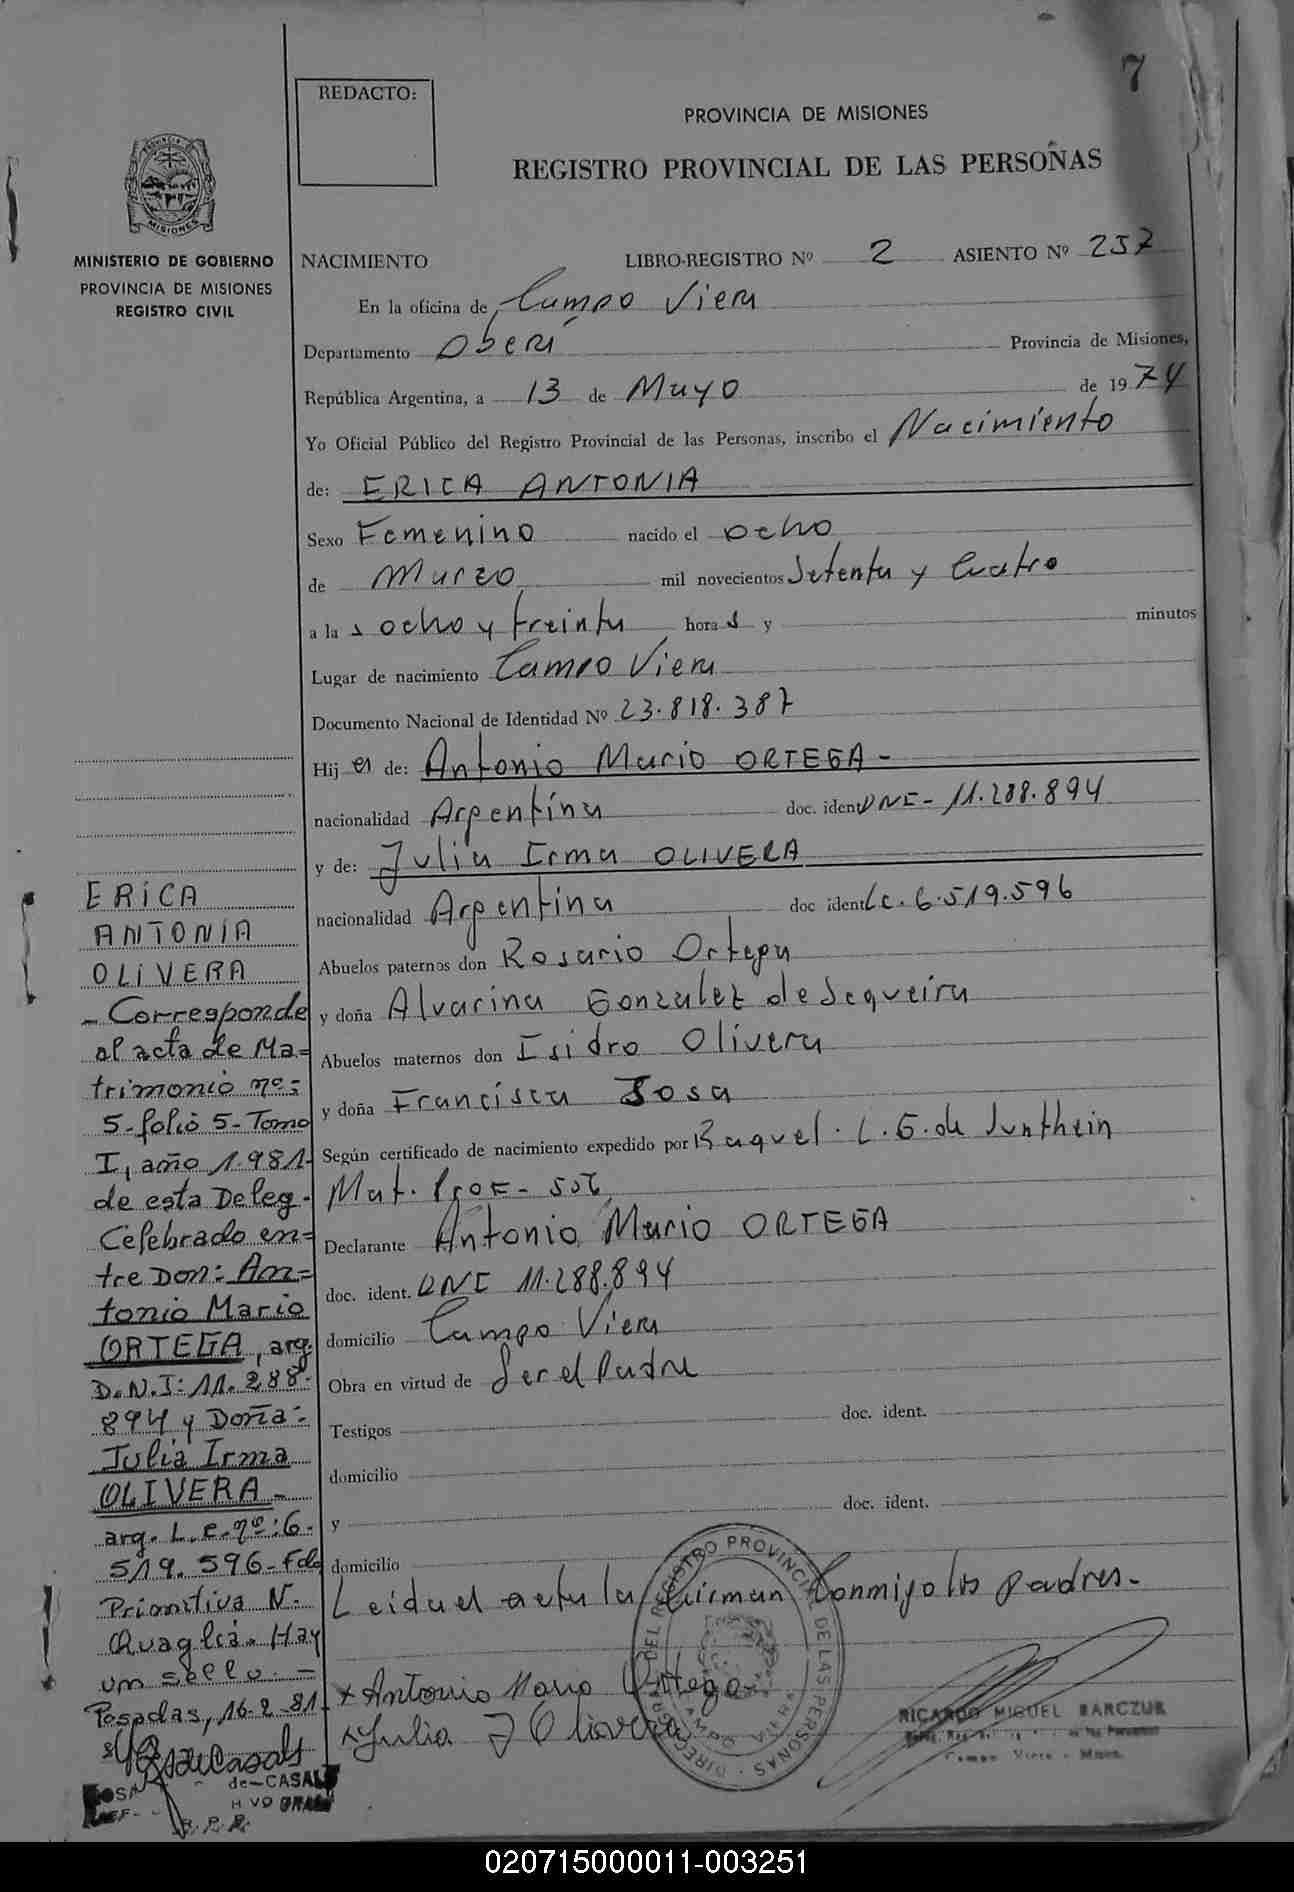 7
REDACTO:
PROVINCIA DE MISIONES
REGISTRO PROVINCIAL DE LAS PERSONAS
MISIONES
MINISTERIO DE GOBIERNO
PROVINCIA DE MISIONES
REGISTRO CIVIL
NACIMIENTO LIBRO-REGISTRO Nº 2 ASIENTO Nº 257
En la oficina de Campo Viera
Departamento Oberá Provincia de Misiones,
República Argentina, a 13 de Mayo de 1974
Yo Oficial Público del Registro Provincial de las Personas, inscribo el Nacimiento
de: ERICA ANTONIA
Sexo Femenino nacido el ocho
de Marzo mil novecientos Setenta y Cuatro
a la s ocho y treinta hora s y minutos
Lugar de nacimiento Campo Viera
Documento Nacional de Identidad Nº 23.818.387
Hij a de: Antonio Mario ORTEGA -
nacionalidad Argentina doc. ident DNI - 11.288.894
y de: Julia Irma OLIVERA
nacionalidad Argentina doc ident LC. 6.519.596
Abuelos paternos don Rosario Ortega
y doña Alvarina Gonzalez de Sequeira
Abuelos maternos don Isidro Olivera
y doña Francisca Sosa
Según certificado de nacimiento expedido por Raquel. L. G. de
Mat. Prof -
Declarante Antonio Mario ORTEGA
doc. ident. DNI 11.288.894
domicilio Campo Viera
Obra en virtud de Ser el Padre
Testigos doc. ident.
domicilio
y doc. ident.
domicilio
Leida el acta la firman Conmigo los padres.-
x Antonio Mario Ortega
x Julia I Olivera
DIRECCION DEL REGISTRO PROVINCIAL DE LAS PERSONAS
CAMPO VIERA
RICARDO MIGUEL BARCZUK
Campo Viera - Mnes.
ERICA
ANTONIA
OLIVERA
- Corresponde
al acta de Ma=
trimonio nº:
5- folio 5- Tomo
I, año 1.981-
de esta Deleg.
Celebrado en=
tre Don: An=
tonio Mario
ORTEGA, arg.
D.N.I: 11.288.
894 y Doña:
Julia Irma
OLIVERA -
arg. L.C. nº: 6.
519.596- Fdo
Primitiva N.
Quaglia. Hay
un sello. -
Posadas, 16-2-81-
de CASALS
020715000011-003251